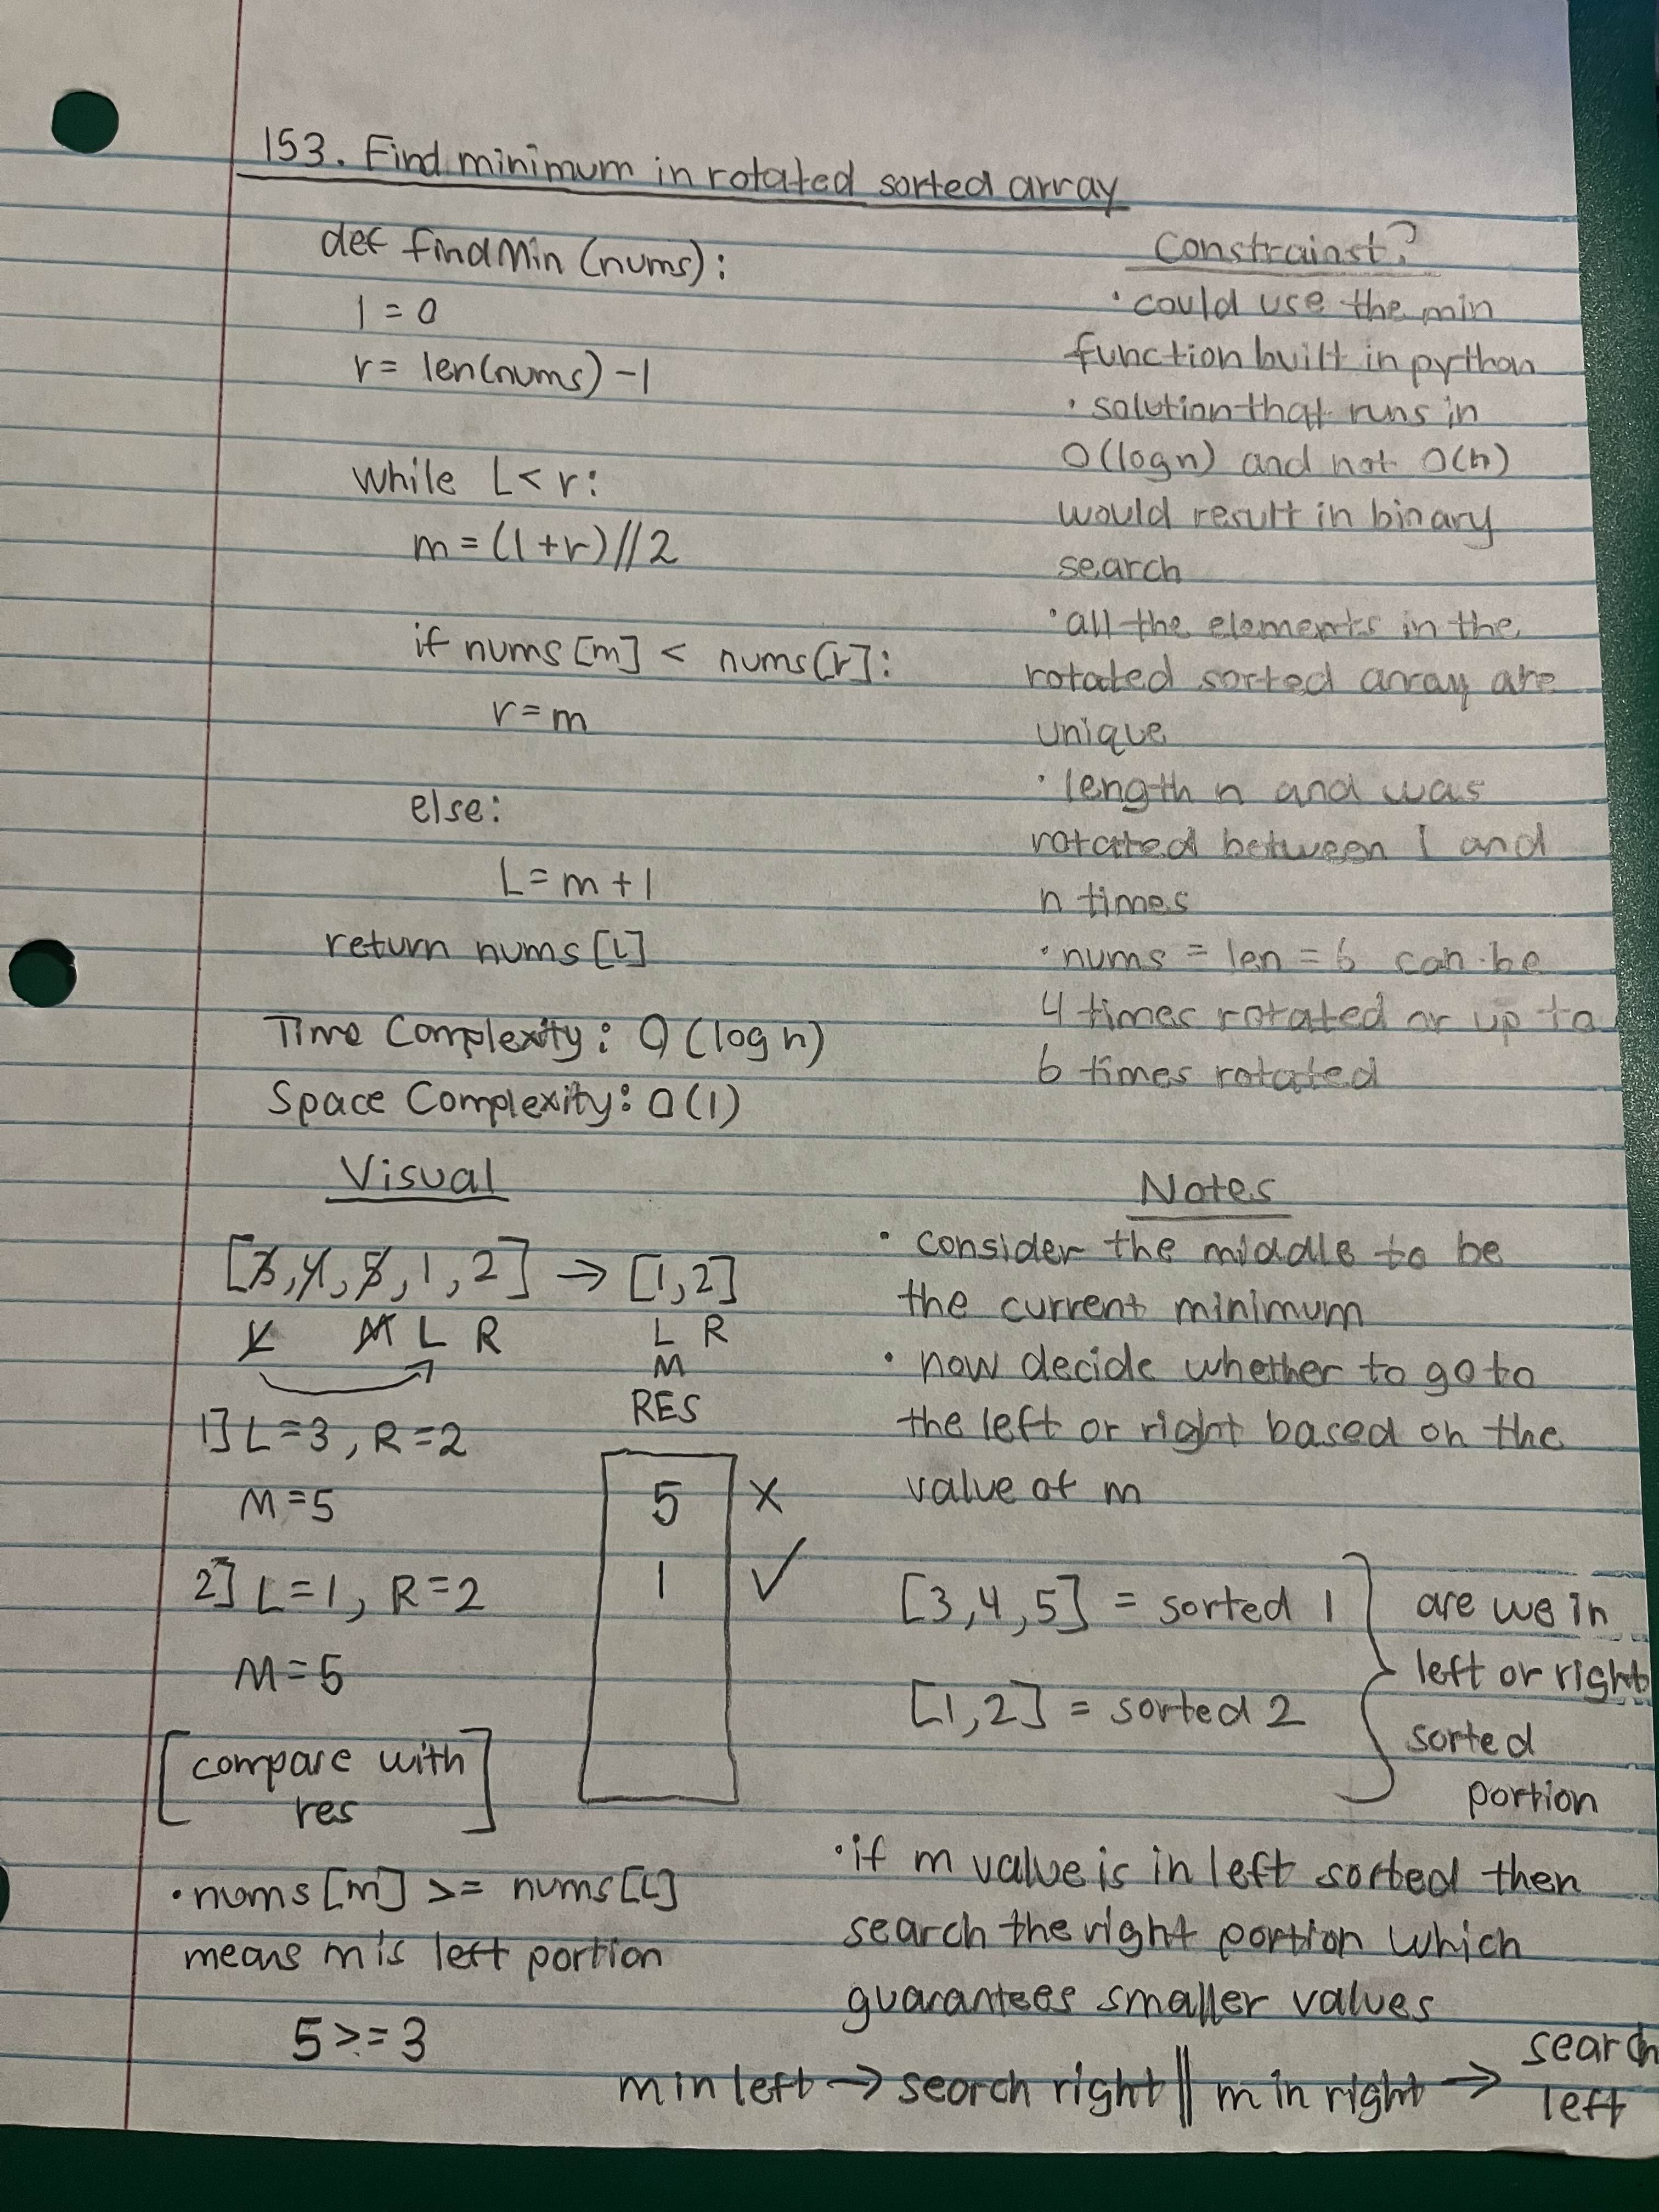 153. Find minimum in rotated sorted array
def findMin (nums):
l = 0
r = len(nums) -1
while L < r:
m = (l + r) // 2
if nums [m] < nums [r]:
r = m
else:
L = m + 1
return nums [L]
Time Complexity: O (log n)
Space Complexity: O (1)
Constrainst?
• could use the min
function built in python
• solution that runs in
O(logn) and not O(n)
would result in binary
search
• all the elements in the
rotated sorted array are
unique
• length n and was
rotated between 1 and
n times
• nums = len = 6 can be
4 times rotated or up to
6 times rotated
Visual
[3, 4, 5, 1, 2] → [1, 2]
L M L R L R
M
RES
1] L = 3, R = 2
M = 5
5 X
2] L = 1, R = 2
1 ✓
M = 5
[compare with
res]
• nums [m] >= nums [L]
means m is left portion
5 >= 3
Notes
• consider the middle to be
the current minimum
• now decide whether to go to
the left or right based on the
value of m
[3, 4, 5] = sorted 1
[1, 2] = sorted 2
are we in
left or right
sorted
portion
• if m value is in left sorted then
search the right portion which
guarantees smaller values
m in left → search right || m in right → search
left